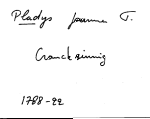 Pladys Jeanne T.
Cranckssinnig
1788-22